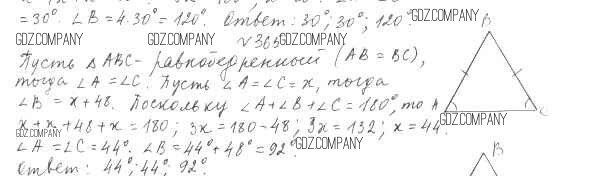 = 30°. ∠B = 4·30° = 120°. Ответ: 30°; 30°; 120°
GDZ.COMPANY
B
GDZ.COMPANY GDZ.COMPANY √365 GDZ.COMPANY
Пусть △ABC - равнобедренный (AB = BC),
тогда ∠A = ∠C. Пусть ∠A = ∠C = x, тогда
∠B = x + 48. Поскольку ∠A + ∠B + ∠C = 180°, то
A C
GDZ.COMPANY
x + x + 48 + x = 180; 3x = 180 - 48; 3x = 132; x = 44
GDZ.COMPANY
∠A = ∠C = 44°. ∠B = 44° + 48° = 92°
GDZ.COMPANY
B
Ответ: 44°; 44°; 92°